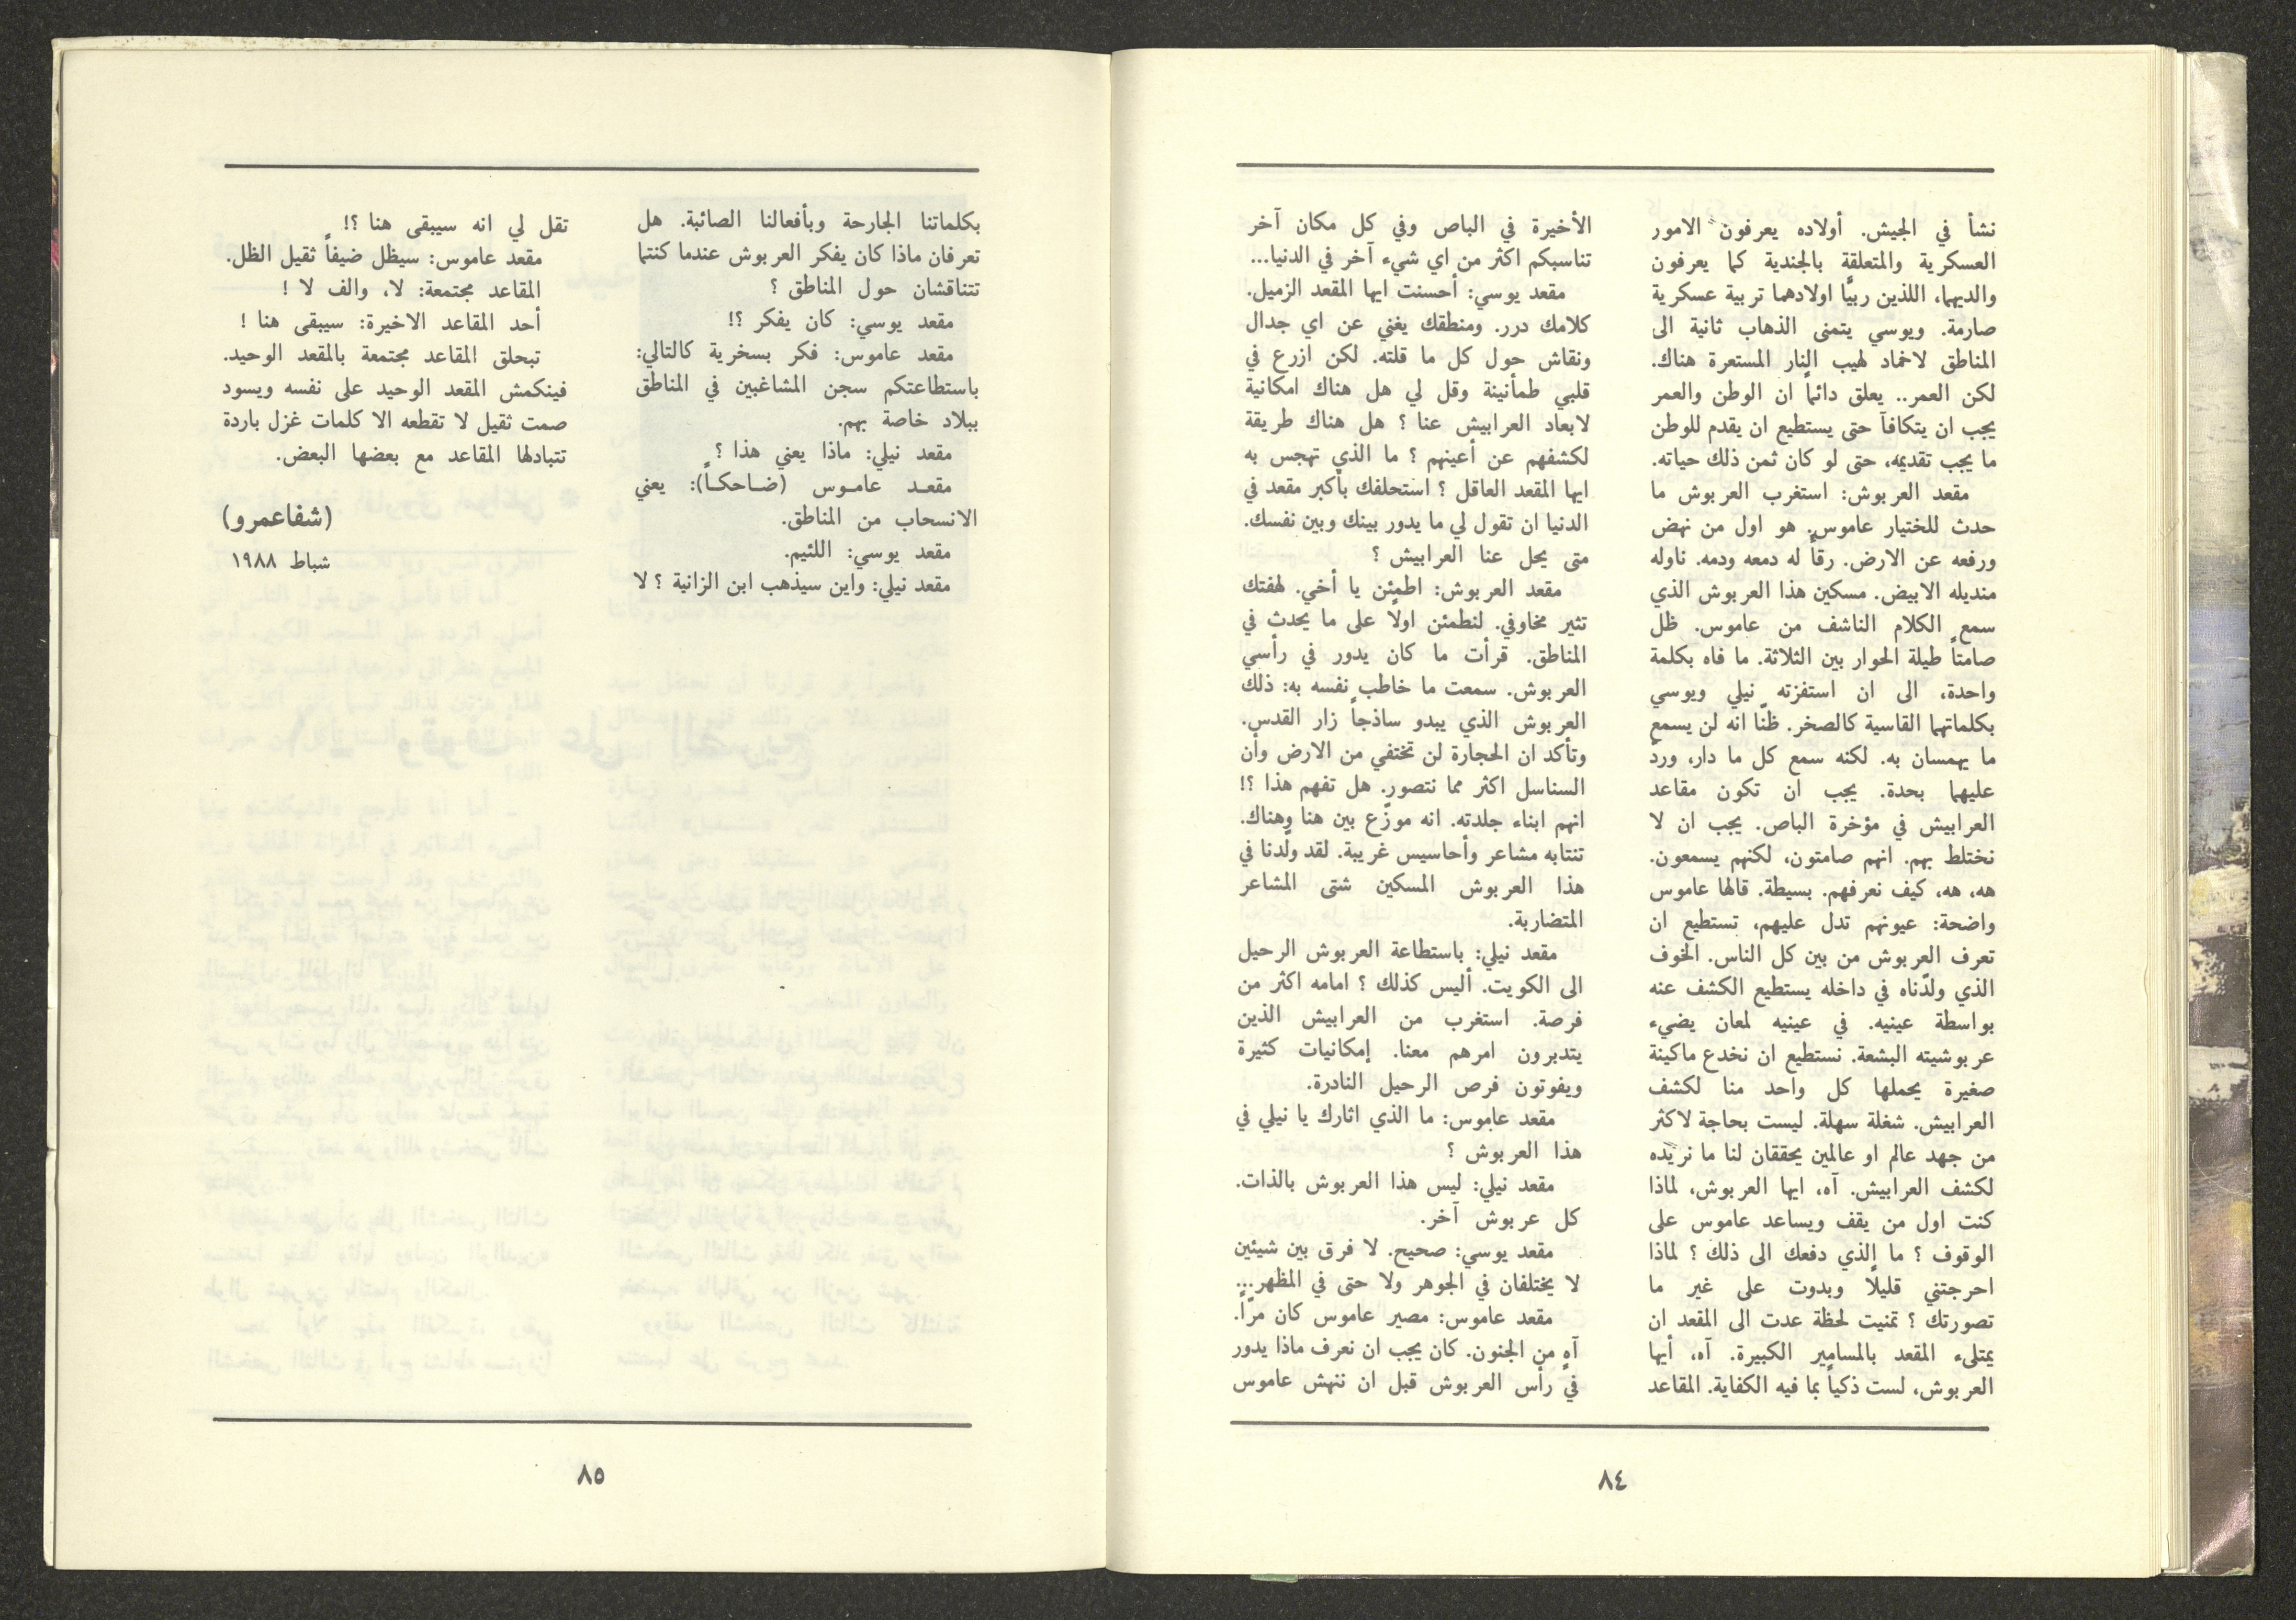 نشأ في الجيش. أولاده يعرفون الامور
العسكرية والمتعلقة بالجندية كما يعرفون
والديهما، اللذين ربيّا اولادهما تربية عسكرية
صارمة. ويوسي يتمنى الذهاب ثانية الى
المناطق لاخماد لهيب النار المستعرة هناك.
لكن العمر.. يعلق دائماً ان الوطن والعمر
يجب ان يتكافآ حتى يستطيع ان يقدم للوطن
ما يجب تقديمه، حتى لو كان ثمن ذلك حياته.
مقعد العربوش: استغرب العربوش ما
حدث للختيار عاموس. هو اول من نهض
ورفعه عن الارض. رقأ له دمعه ودمه. ناوله
منديله الابيض. مسكين هذا العربوش الذي
سمع الكلام الناشف من عاموس. ظل
صامتاً طيلة الحوار بين الثلاثة. ما فاه بكلمة
واحدة، الى ان استفزته نيلي ويوسي
بكلماتهما القاسية كالصخر. ظنّا انه لن يسمع
ما يهمسان به. لكنه سمع كل ما دار، وردّ
عليهما بحدة. يجب ان تكون مقاعد
العرابيش في مؤخرة الباص. يجب ان لا
نختلط بهم. انهم صامتون، لكنهم يسمعون.
هه، هه، كيف نعرفهم. بسيطة. قالها عاموس
واضحة: عيونهم تدل عليهم، تستطيع ان
تعرف العربوش من بين كل الناس. الخوف
الذي ولدّناه في داخله يستطيع الكشف عنه
بواسطة عينيه. في عينيه لمعان يضيء
عربوشيته البشعة. نستطيع ان نخدع ماكينة
صغيرة يحملها كل واحد منا لكشف
العرابيش. شغلة سهلة. ليست بحاجة لاكثر
من جهد عالم او عالمين يحققان لنا ما نريده
لكشف العرابيش. آه، ايها العربوش، لماذا
كنت اول من يقف ويساعد عاموس على
الوقوف ؟ ما الذي دفعك الى ذلك ؟ لماذا
احرجتني قليلاً وبدوت على غير ما
تصورتك ؟ تمنيت لحظة عدت الى المقعد ان
يمتلىء المقعد بالمسامير الكبيرة. آه، أيها
العربوش، لست ذكياً بما فيه الكفاية. المقاعد
الأخيرة في الباص وفي كل مكان آخر
تناسبكم اكثر من اي شيء آخر في الدنيا...
مقعد يوسي: أحسنت ايها المقعد الزميل.
كلامك درر. ومنطقك يغني عن اي جدال
ونقاش حول كل ما قلته. لكن ازرع في
قلبي طمأنينة وقل لي هل هناك امكانية
لابعاد العرابيش عنا ؟ هل هناك طريقة
لكشفهم عن أعينهم ؟ ما الذي تهجس به
ايها المقعد العاقل ؟ استحلفك بأكبر مقعد في
الدنيا ان تقول لي ما يدور بينك وبين نفسك.
متى يحل عنا العرابيش ؟
مقعد العربوش: اطمئن يا أخي. لهفتك
تثير مخاوفي. لنطمئن اولاً على ما يحدث في
المناطق. قرأت ما كان يدور في رأسي
العربوش. سمعت ما خاطب نفسه به: ذلك
العربوش الذي يبدو ساذجاً زار القدس.
وتأكد ان الحجارة لن تختفي من الارض وأن
السناسل اكثر مما نتصور. هل تفهم هذا ؟!
انهم ابناء جلدته. انه موزّع بين هنا وهناك.
تنتابه مشاعر وأحاسيس غريبة. لقد ولّدنا في
هذا العربوش المسكين شتى المشاعر
المتضاربة.
مقعد نيلي: باستطاعة العربوش الرحيل
الى الكويت. أليس كذلك ؟ امامه اكثر من
فرصة. استغرب من العرابيش الذين
يتدبرون امرهم معنا. إمكانيات كثيرة
ويفوتون فرص الرحيل النادرة.
مقعد عاموس: ما الذي اثارك يا نيلي في
هذا العربوش ؟
مقعد نيلي: ليس هذا العربوش بالذات.
كل عربوش آخر.
مقعد يوسي: صحيح. لا فرق بين شيئين
لا يختلفان في الجوهر ولا حتى في المظهر...
مقعد عاموس: مصير عاموس كان مرّاً.
آهٍ من الجنون. كان يجب ان نعرف ماذا يدور
في رأس العربوش قبل ان ننهش عاموس
٨٤
بكلماتنا الجارحة وبأفعالنا الصائبة. هل
تعرفان ماذا كان يفكر العربوش عندما كنتما
تتناقشان حول المناطق ؟
مقعد يوسي: كان يفكر ؟!
مقعد عاموس: فكر بسخرية كالتالي:
باستطاعتكم سجن المشاغبين في المناطق
ببلاد خاصة بهم.
مقعد نيلي: ماذا يعني هذا ؟
مقعـد عامـوس (ضـاحكـاً): يعني
الانسحاب من المناطق.
مقعد يوسي: اللئيم.
مقعد نيلي: واين سيذهب ابن الزانية ؟ لا
تقل لي انه سيبقى هنا ؟!
مقعد عاموس: سيظل ضيفاً ثقيل الظل.
المقاعد مجتمعة: لا، والف لا !
أحد المقاعد الاخيرة: سيبقى هنا !
تبحلق المقاعد مجتمعة بالمقعد الوحيد.
فينكمش المقعد الوحيد على نفسه ويسود
صمت ثقيل لا تقطعه الا كلمات غزل باردة
تتبادلها المقاعد مع بعضها البعض.
(شفاعمرو)
شباط ١٩٨٨
٨٥